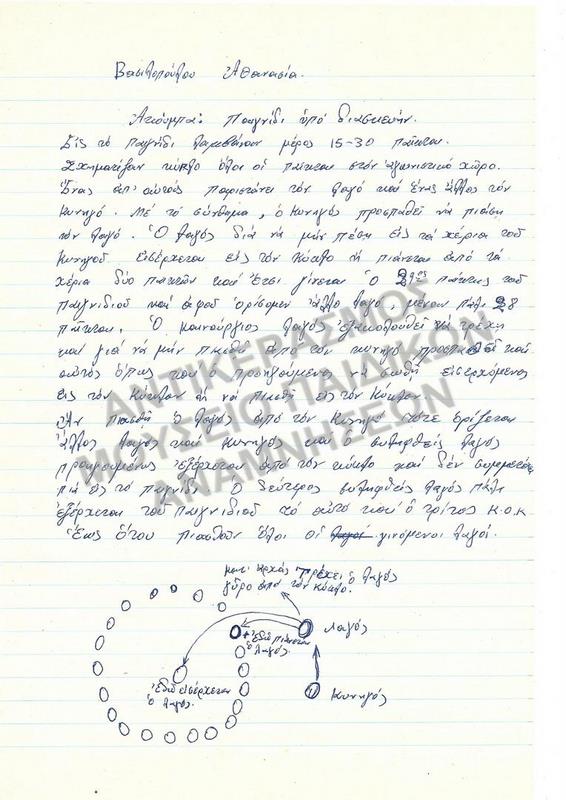 Βασιλοπούλου Ἀθανασία.
Ἀτιούμπα: Παιγνίδι ὑπό διασκευήν.
Εἰς τό παιγνίδι λαμβάνουν μέρος 15-30 παῖκται.
Σχηματίζουν κύκλο ὅλοι οἱ παῖκται στόν ἀγωνιστικό χῶρο.
Ἕνας ἀπ' αὐτούς παριστάνει τόν λαγό καί ἕνας ἄλλος τόν
κυνηγό. Μέ τό σύνθημα, ὁ κυνηγός προσπαθεῖ νά πιάσῃ
τόν λαγό. Ὁ λαγός διά νά μήν πέσῃ εἰς τά χέρια τοῦ
κυνηγοῦ εἰσέρχεται εἰς τόν κύκλο ἤ πιάνεται ἀπό τά
χέρια δύο παικτῶν καί ἔτσι γίνεται ὁ 29ος παίκτης τοῦ
παιγνιδιοῦ καί ἀφοῦ ὁρίσομεν ἄλλο λαγό, μένουν πάλι 28
παῖκται. Ὁ καινούργιος λαγός ἐξακολουθεῖ νά τρέχῃ
καί γιά νά μήν πιασθῇ ἀπό τόν κυνηγό προσπαθεῖ καί
αὐτός ὅπως καί ὁ προηγούμενος νά σωθῇ εἰσερχόμενος
εἰς τόν κύκλον ἤ νά πιασθῇ εἰς τόν κύκλον.
Ἄν πιασθῇ ὁ λαγός ἀπό τόν κυνηγό τότε ὁρίζεται
ἄλλος λαγός καί κυνηγός καί ὁ συλληφθείς λαγός
προηγουμένως ἐξέρχεται ἀπό τόν κύκλο καί δέν συμμετέχει
πιά εἰς τό παιγνίδι. Ὁ δεύτερος συλληφθείς λαγός πάλι
ἐξέρχεται τοῦ παιγνιδιοῦ τό αὐτό καί ὁ τρίτος κ.ο.κ
ἕως ὅτου πιασθοῦν ὅλοι οἱ λαγοί γινόμενοι λαγοί.
κατ' ἀρχάς τρέχει ὁ λαγός
γῦρο ἀπό τόν κύκλο.
λαγός
Ἐδῶ πιάνεται
ὁ λαγός.
Ἐδῶ εἰσέρχεται
ὁ λαγός.
κυνηγός
ΑΝΤΙΚΕΡΑΣΜΟΣ
ΜΟΥΣΕΙΟ ΠΑΙΔΙΚΩΝ
ΑΝΑΜΝΗΣΕΩΝ